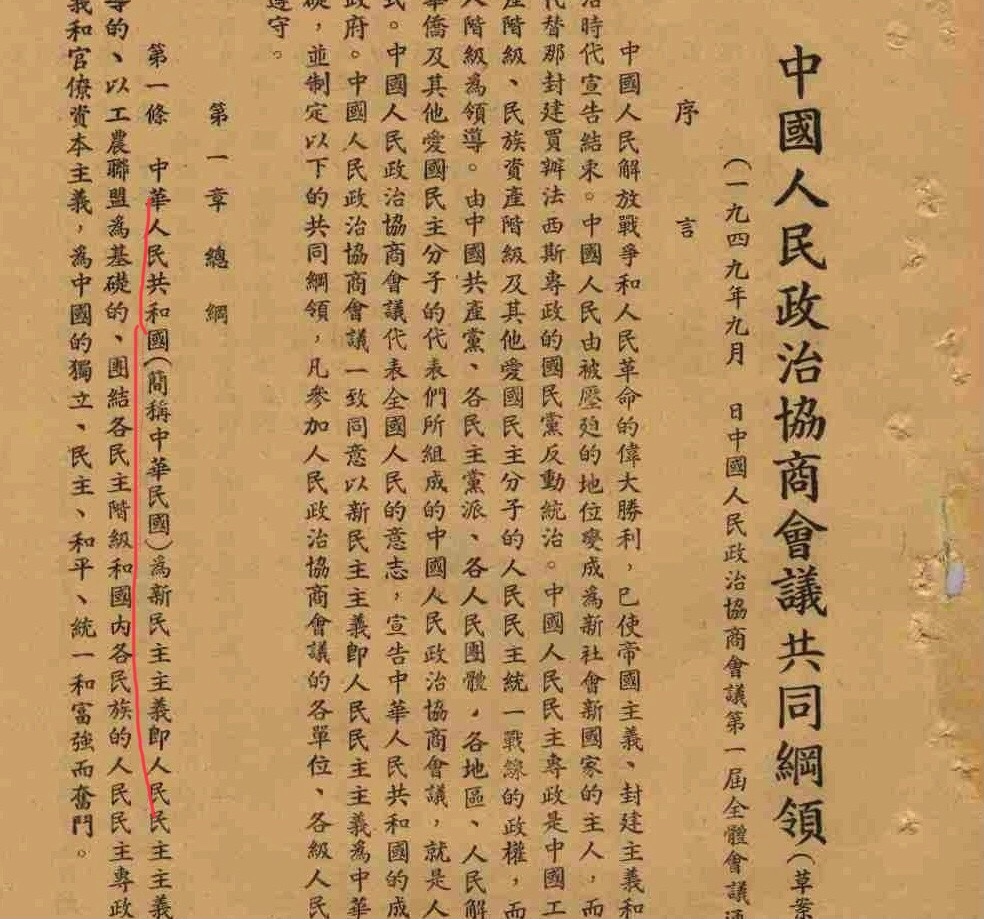 中國人民政治協商會議共同綱領（草案
（一九四九年九月　日中國人民政治協商會議第一屆全體會議通
序言
中國人民解放戰爭和人民革命的偉大勝利，已使帝國主義、封建主義和
治時代宣告結束。中國人民由被壓迫的地位變成為新社會新國家的主人，而
代替那封建買辦法西斯專政的國民黨反動統治。中國人民民主專政是中國工
產階級、民族資產階級及其他愛國民主分子的人民民主統一戰線的政權，而
人階級為領導。由中國共產黨、各民主黨派、各人民團體，各地區、人民解
華僑及其他愛國民主分子的代表們所組成的中國人民政治協商會議，就是人
式。中國人民政治協商會議代表全國人民的意志，宣告中華人民共和國的成
政府。中國人民政治協商會議一致同意以新民主主義卽人民民主主義為中華
礎，並制定以下的共同綱領，凡參加人民政治協商會議的各單位、各級人民
遵守。
第一章 總綱
第一條　中華人民共和國（簡稱中華民國）為新民主主義卽人民民主主義
導的、以工農聯盟為基礎的、團結各民主階級和國內各民族的人民民主專政
義和官僚資本主義，為中國的獨立、民主、和平、統一和富強而奮鬥。